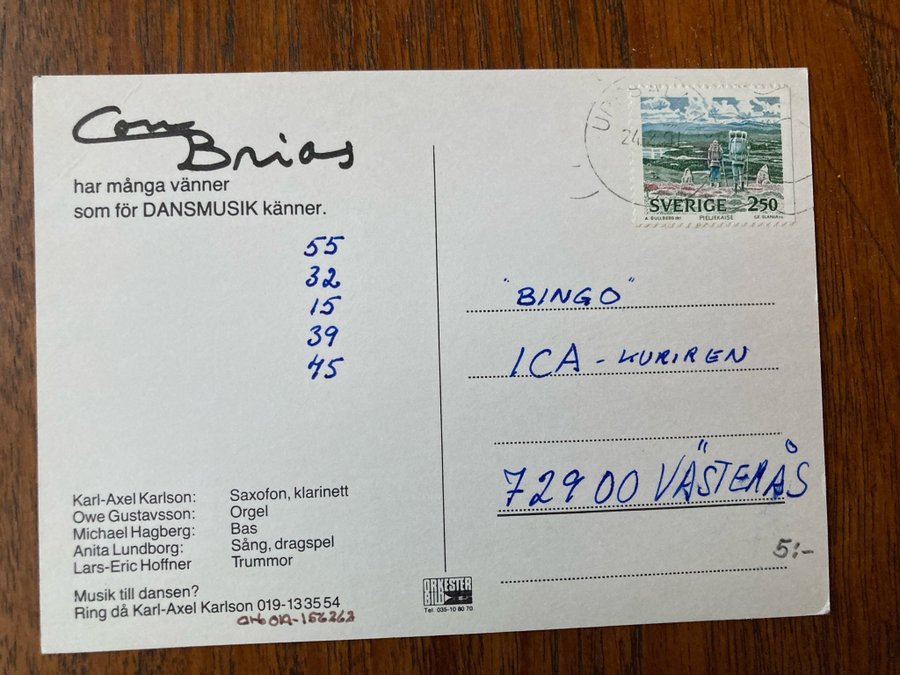 Con
Brios
har många vänner
som för DANSMUSIK känner.
55
32
15
39
45
Karl-Axel Karlson: Saxofon, klarinett
Owe Gustavsson: Orgel
Michael Hagberg: Bas
Anita Lundborg: Sång, dragspel
Lars-Eric Hoffner Trummor
Musik till dansen?
Ring då Karl-Axel Karlson 019-13 35 54
019-156263
ORKESTER
BILD
Tel. 035-10 80 70
SVERIGE 250
PIELJEKAISE
"BINGO"
ICA-KURIREN
729 00 VÄSTERÅS
5:-